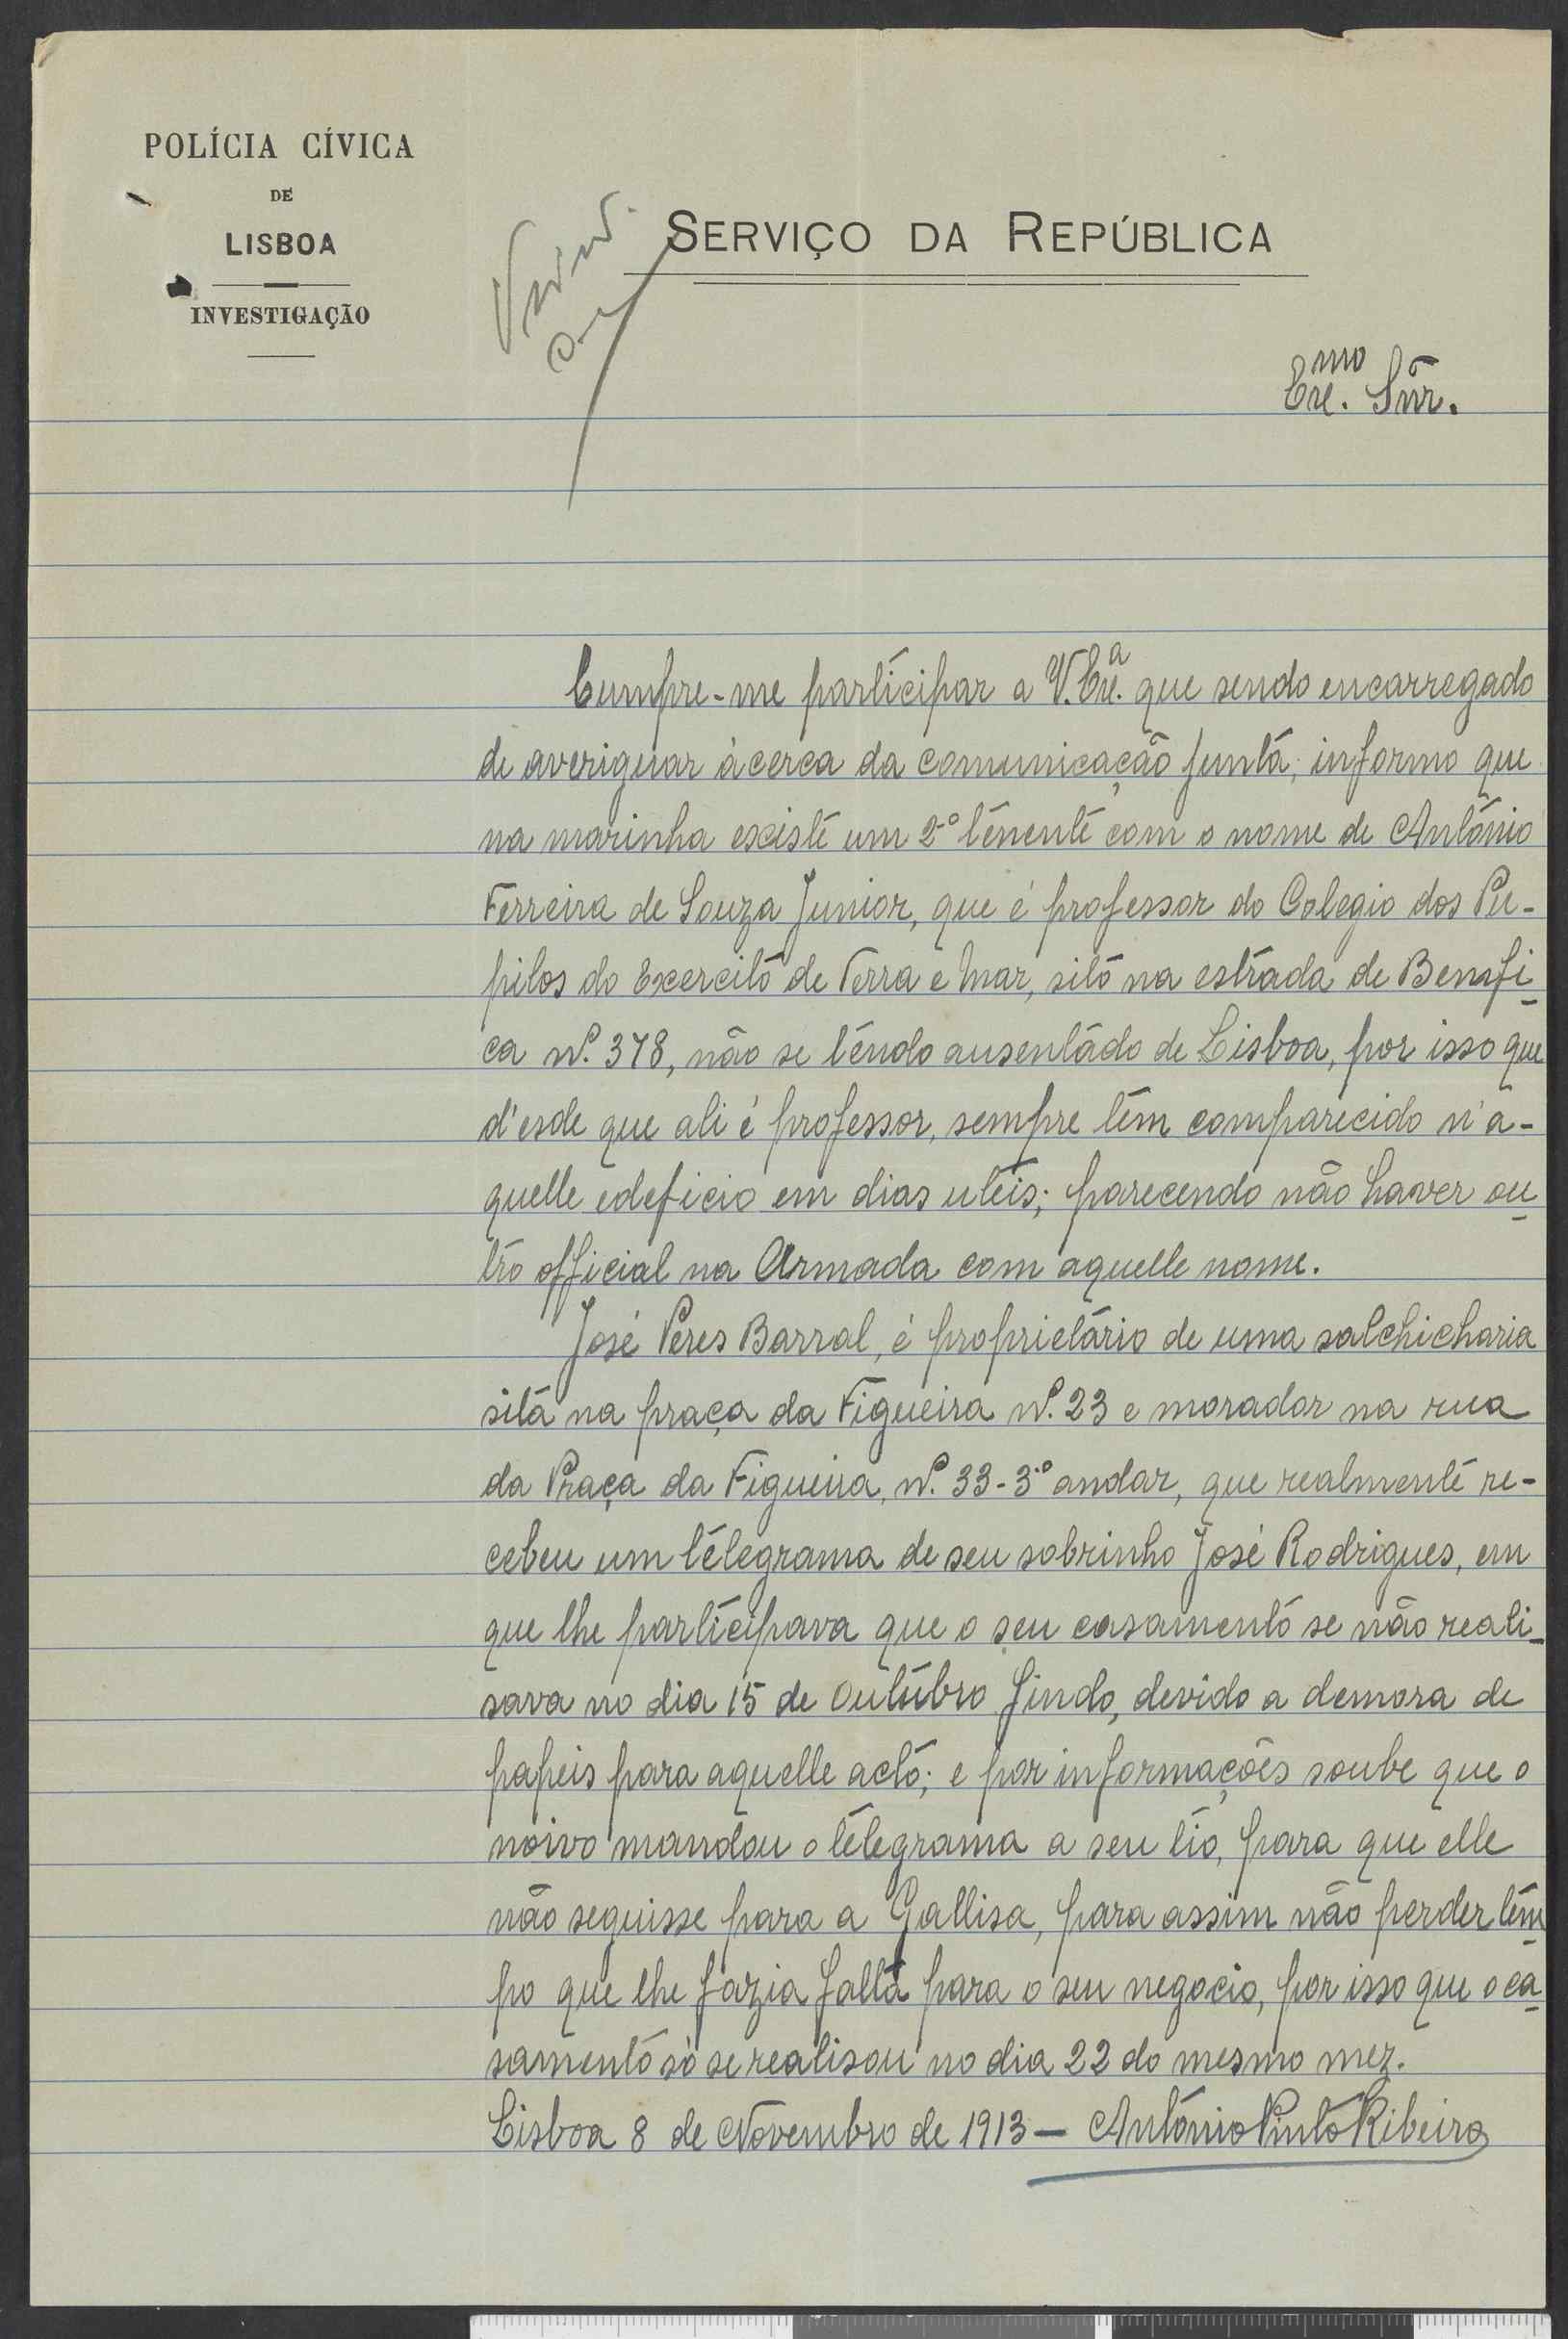 POLÍCIA CÍVICA
DE
LISBOA
INVESTIGAÇÃO
SERVIÇO DA REPÚBLICA
Exmo. Snr.
Cumpre-me participar a V. Exa. que sendo encarregado
de averiguar àcerca da comunicação junta, informo que
na marinha existe um 2º tenente com o nome de António
Ferreira de Souza Junior, que é professor do Colegio dos Pu-
pilos do Exercito de Terra e Mar, sito na estrada de Bemfi-
ca nº. 378, não se tendo ausentado de Lisboa, por isso que
d'esde que ali é professor, sempre tem comparecido n'a-
quelle edeficio em dias uteis; parecendo não haver ou-
tro official na Armada com aquelle nome.
José Peres Barral, é proprietário de uma salchicharia
sita na praça da Figueira nº. 23 e morador na rua
da Praça da Figueira, nº. 33-3º andar, que realmente re-
cebeu um telegrama de seu sobrinho José Rodrigues, em
que lhe participava que o seu casamento se não reali-
sava no dia 15 de Outubro findo, devido a demora de
papeis para aquelle acto; e por informações soube que o
noivo mandou o telegrama a seu tio, para que elle
não seguisse para a Gallisa, para assim não perder tem-
po que lhe fazia falta para o seu negocio, por isso que o ca-
samento só se realisou no dia 22 do mesmo mez.
Lisboa 8 de Novembro de 1913 — António Pinto Ribeiro